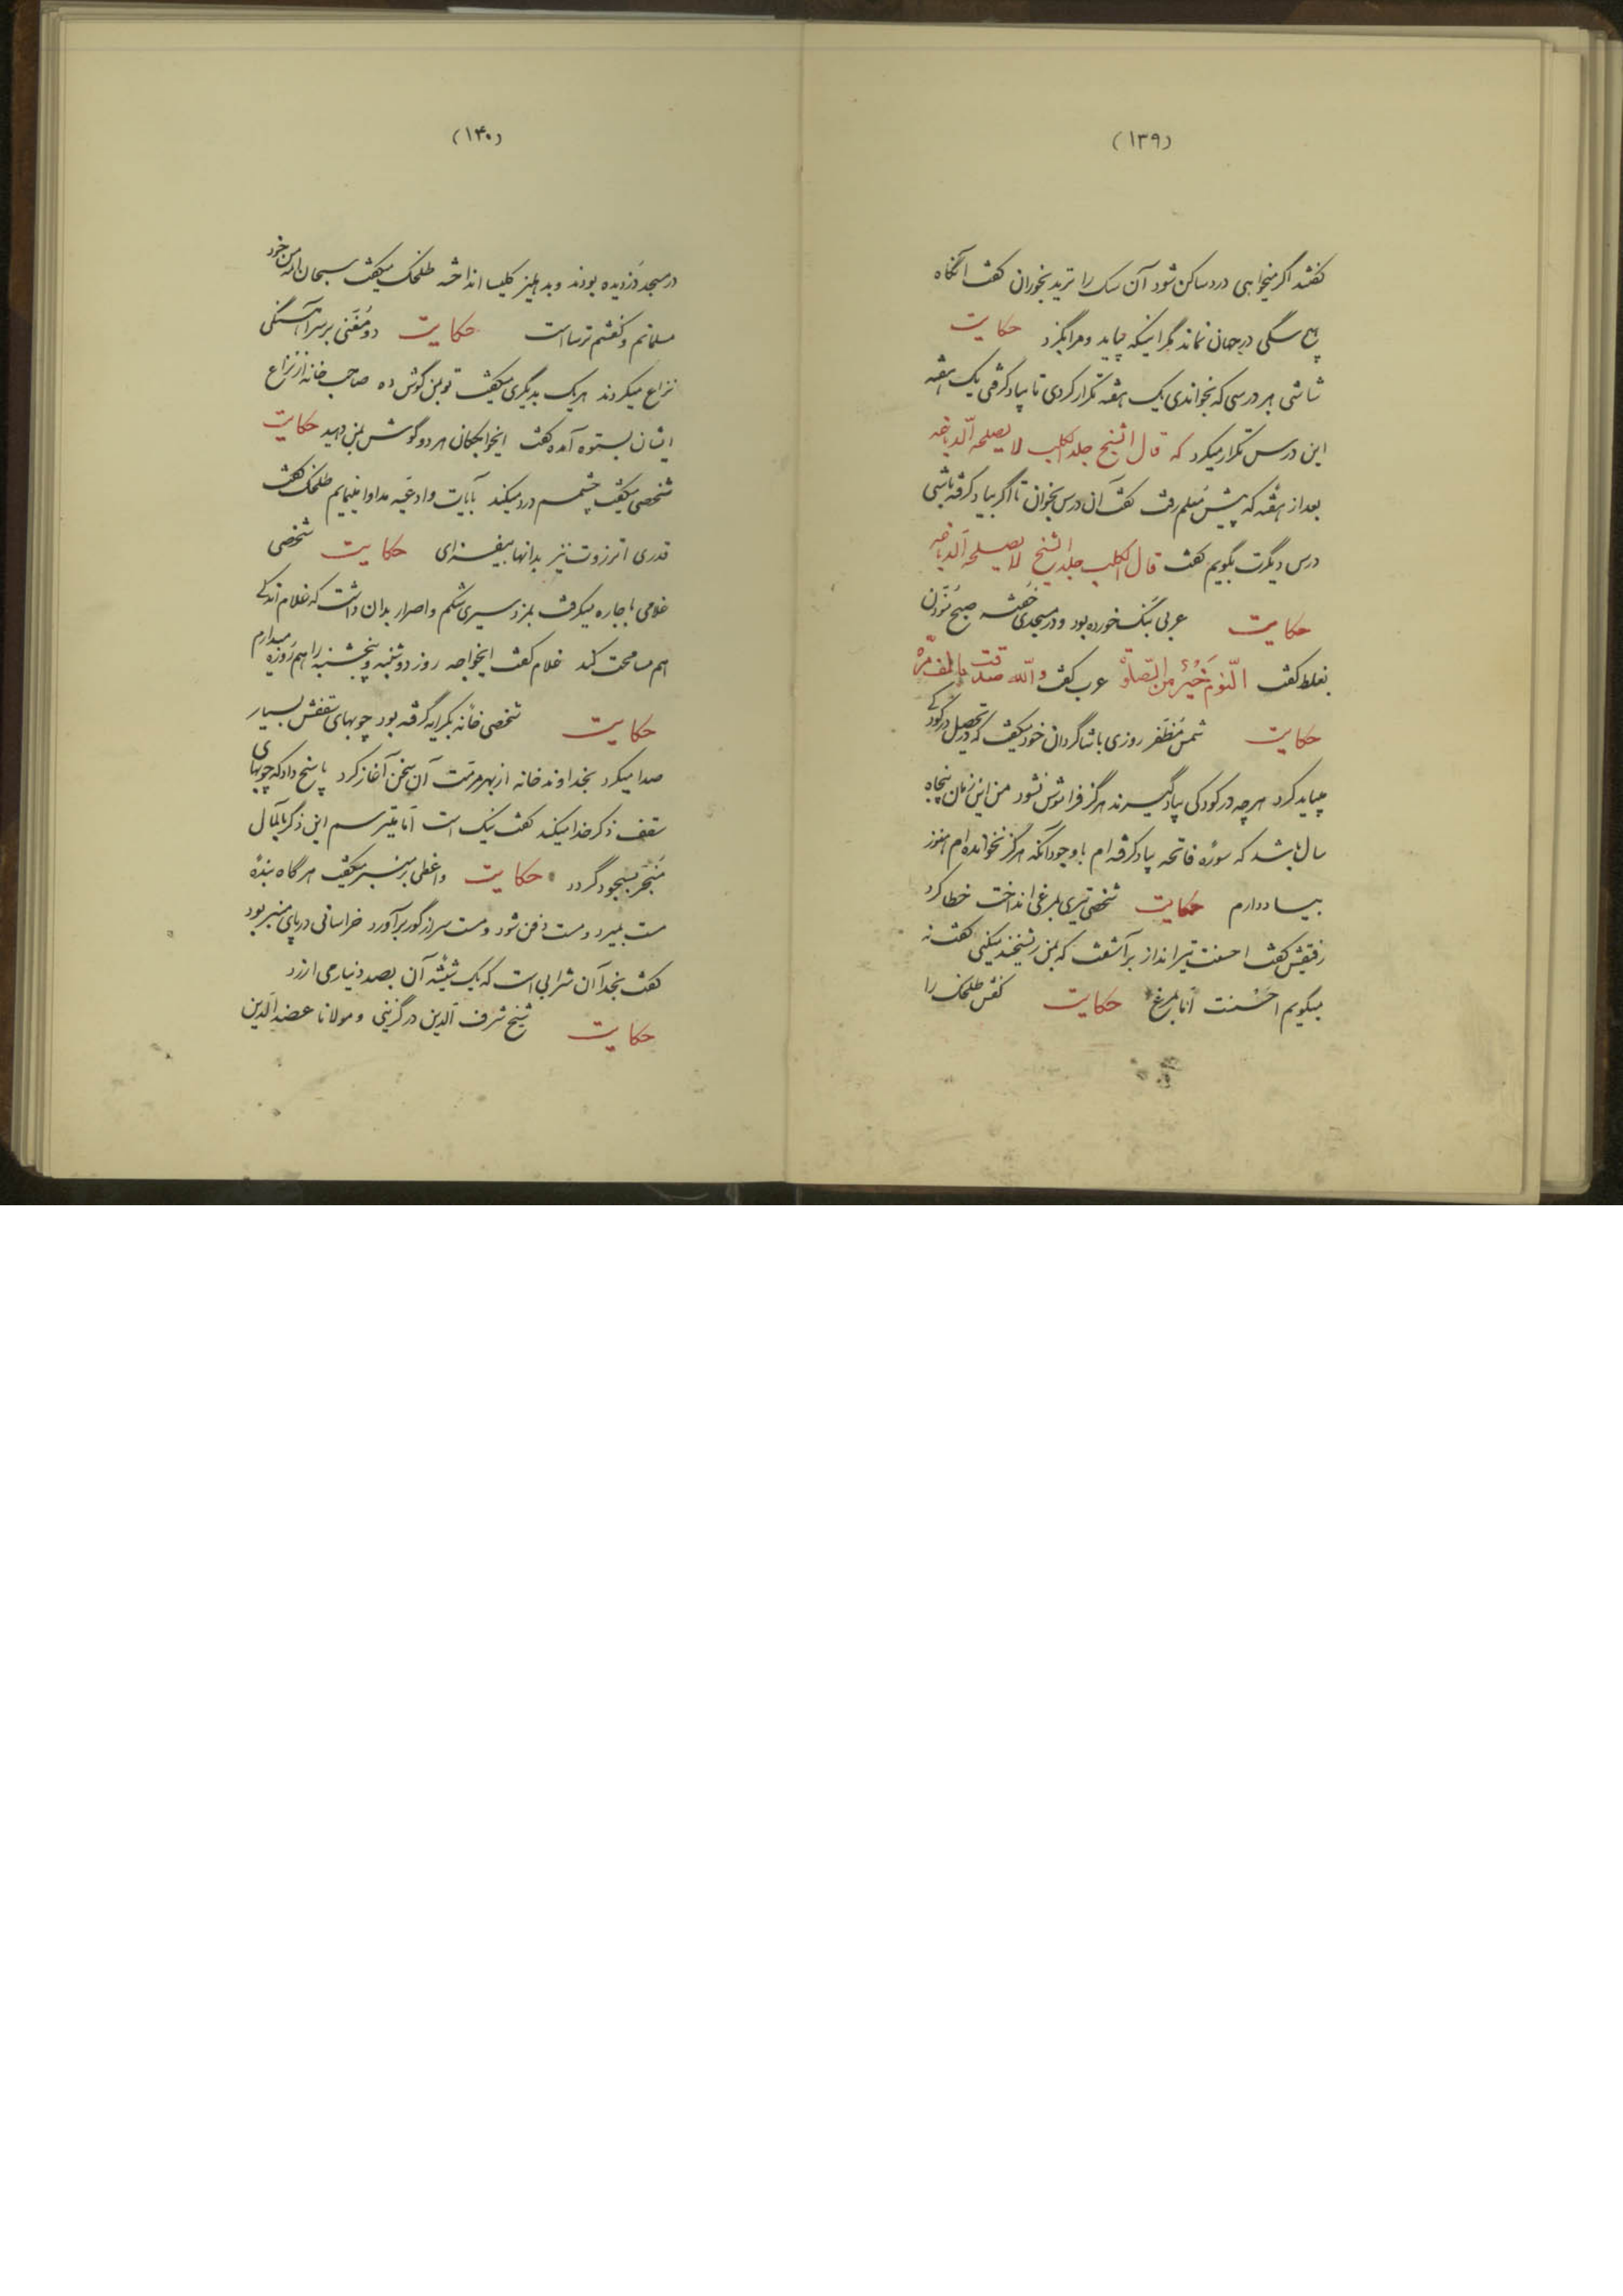 (۱۳۹)
گفتند اگر میخواهی درد ساکن شود آن سک را ترید بخوران گفت آنگاه
هیچ سگی در جهان نماند مگر اینکه بیاید و مرا بگزد حکایت
شاشی هر درسی که بخواندی یک هفته تکرار کردی تا یاد گرفتی یک هفته
این درس تکرار میکرد که قال الشیخ جلد الکلب لا یصلحه الدباغه
بعد از هفته که پیش معلم رفت گفت آن درس بخوان تا اگر یاد گرفته باشی
درس دیگرت بگویم گفت قال الکلب جلد الشیخ لا یصلحه الدباغه
حکایت عربی بنگ خورده بود و در مسجدی خفته صبح مؤذن
بغلط گفت النّوم خَیْرٌ من الصّلوة عرب گفت والله صدقت بالف مرّة
حکایت شمس مظفر روزی با شاگردان خود میگفت که تحصیل در کودکی
میباید کرد هرچه در کودکی یاد گیرند هرگز فراموش نشود من این زمان پنجاه
سال باشد که سورهٔ فاتحه یاد گرفته‌ام با وجود آنکه هرگز نخوانده‌ام هنوز
بیاد دارم حکایت شخصی تیری بمرغی انداخت خطا کرد
رفیقش گفت احسنت تیرانداز برآشفت که بمن ریشخند میکنی گفت نه
میگویم احسنت اما بمرغ حکایت کفش طلخک را
(۱۴۰)
در مسجد دزدیده بودند و بدهلیز کلیسا انداخته طلخک میگفت سبحان الله من خود
مسلمانم و کفشم ترسا است حکایت دو مُغَنّی بر سر آهنگی
نزاع میکردند هر یک بدیگری میگفت تو بمن گوش ده صاحب خانه از نزاع
ایشان بستوه آمده گفت ایخواجگان هر دو گوش بمن دهید حکایت
شخصی میگفت چشمم درد میکند بآیات و ادعیه مداوا مینمایم طلخک گفت
قدری انزروت نیز بدانها بیفزای حکایت شخصی
غلامی باجاره میگرفت بمزد سیری شکم و اصرار بدان داشت که غلام اندکی
هم مسامحت کند غلام گفت ایخواجه روز دوشنبه و پنجشنبه را هم روزه میدارم
حکایت شخصی خانه بکرایه گرفته بود چوبهای سقفش بسیار
صدا میکرد بخداوند خانه از بهر مرمت آن سخن آغاز کرد پاسخ داد که چوبهای
سقف ذکر خدا میکند گفت نیک است امّا میترسم این ذکر بالمآل
مُنجَر بسجود گردد حکایت واعظی بر منبر میگفت هرگاه بندهٔ
مست بمیرد و مست دفن شود و مست سر از گور برآورد خراسانی در پای منبر بود
گفت بخدا آن شرابی است که یک شیشه آن بصد دنیار می ارزد
حکایت شیخ شرف الدین درگزینی و مولانا عضد الدین